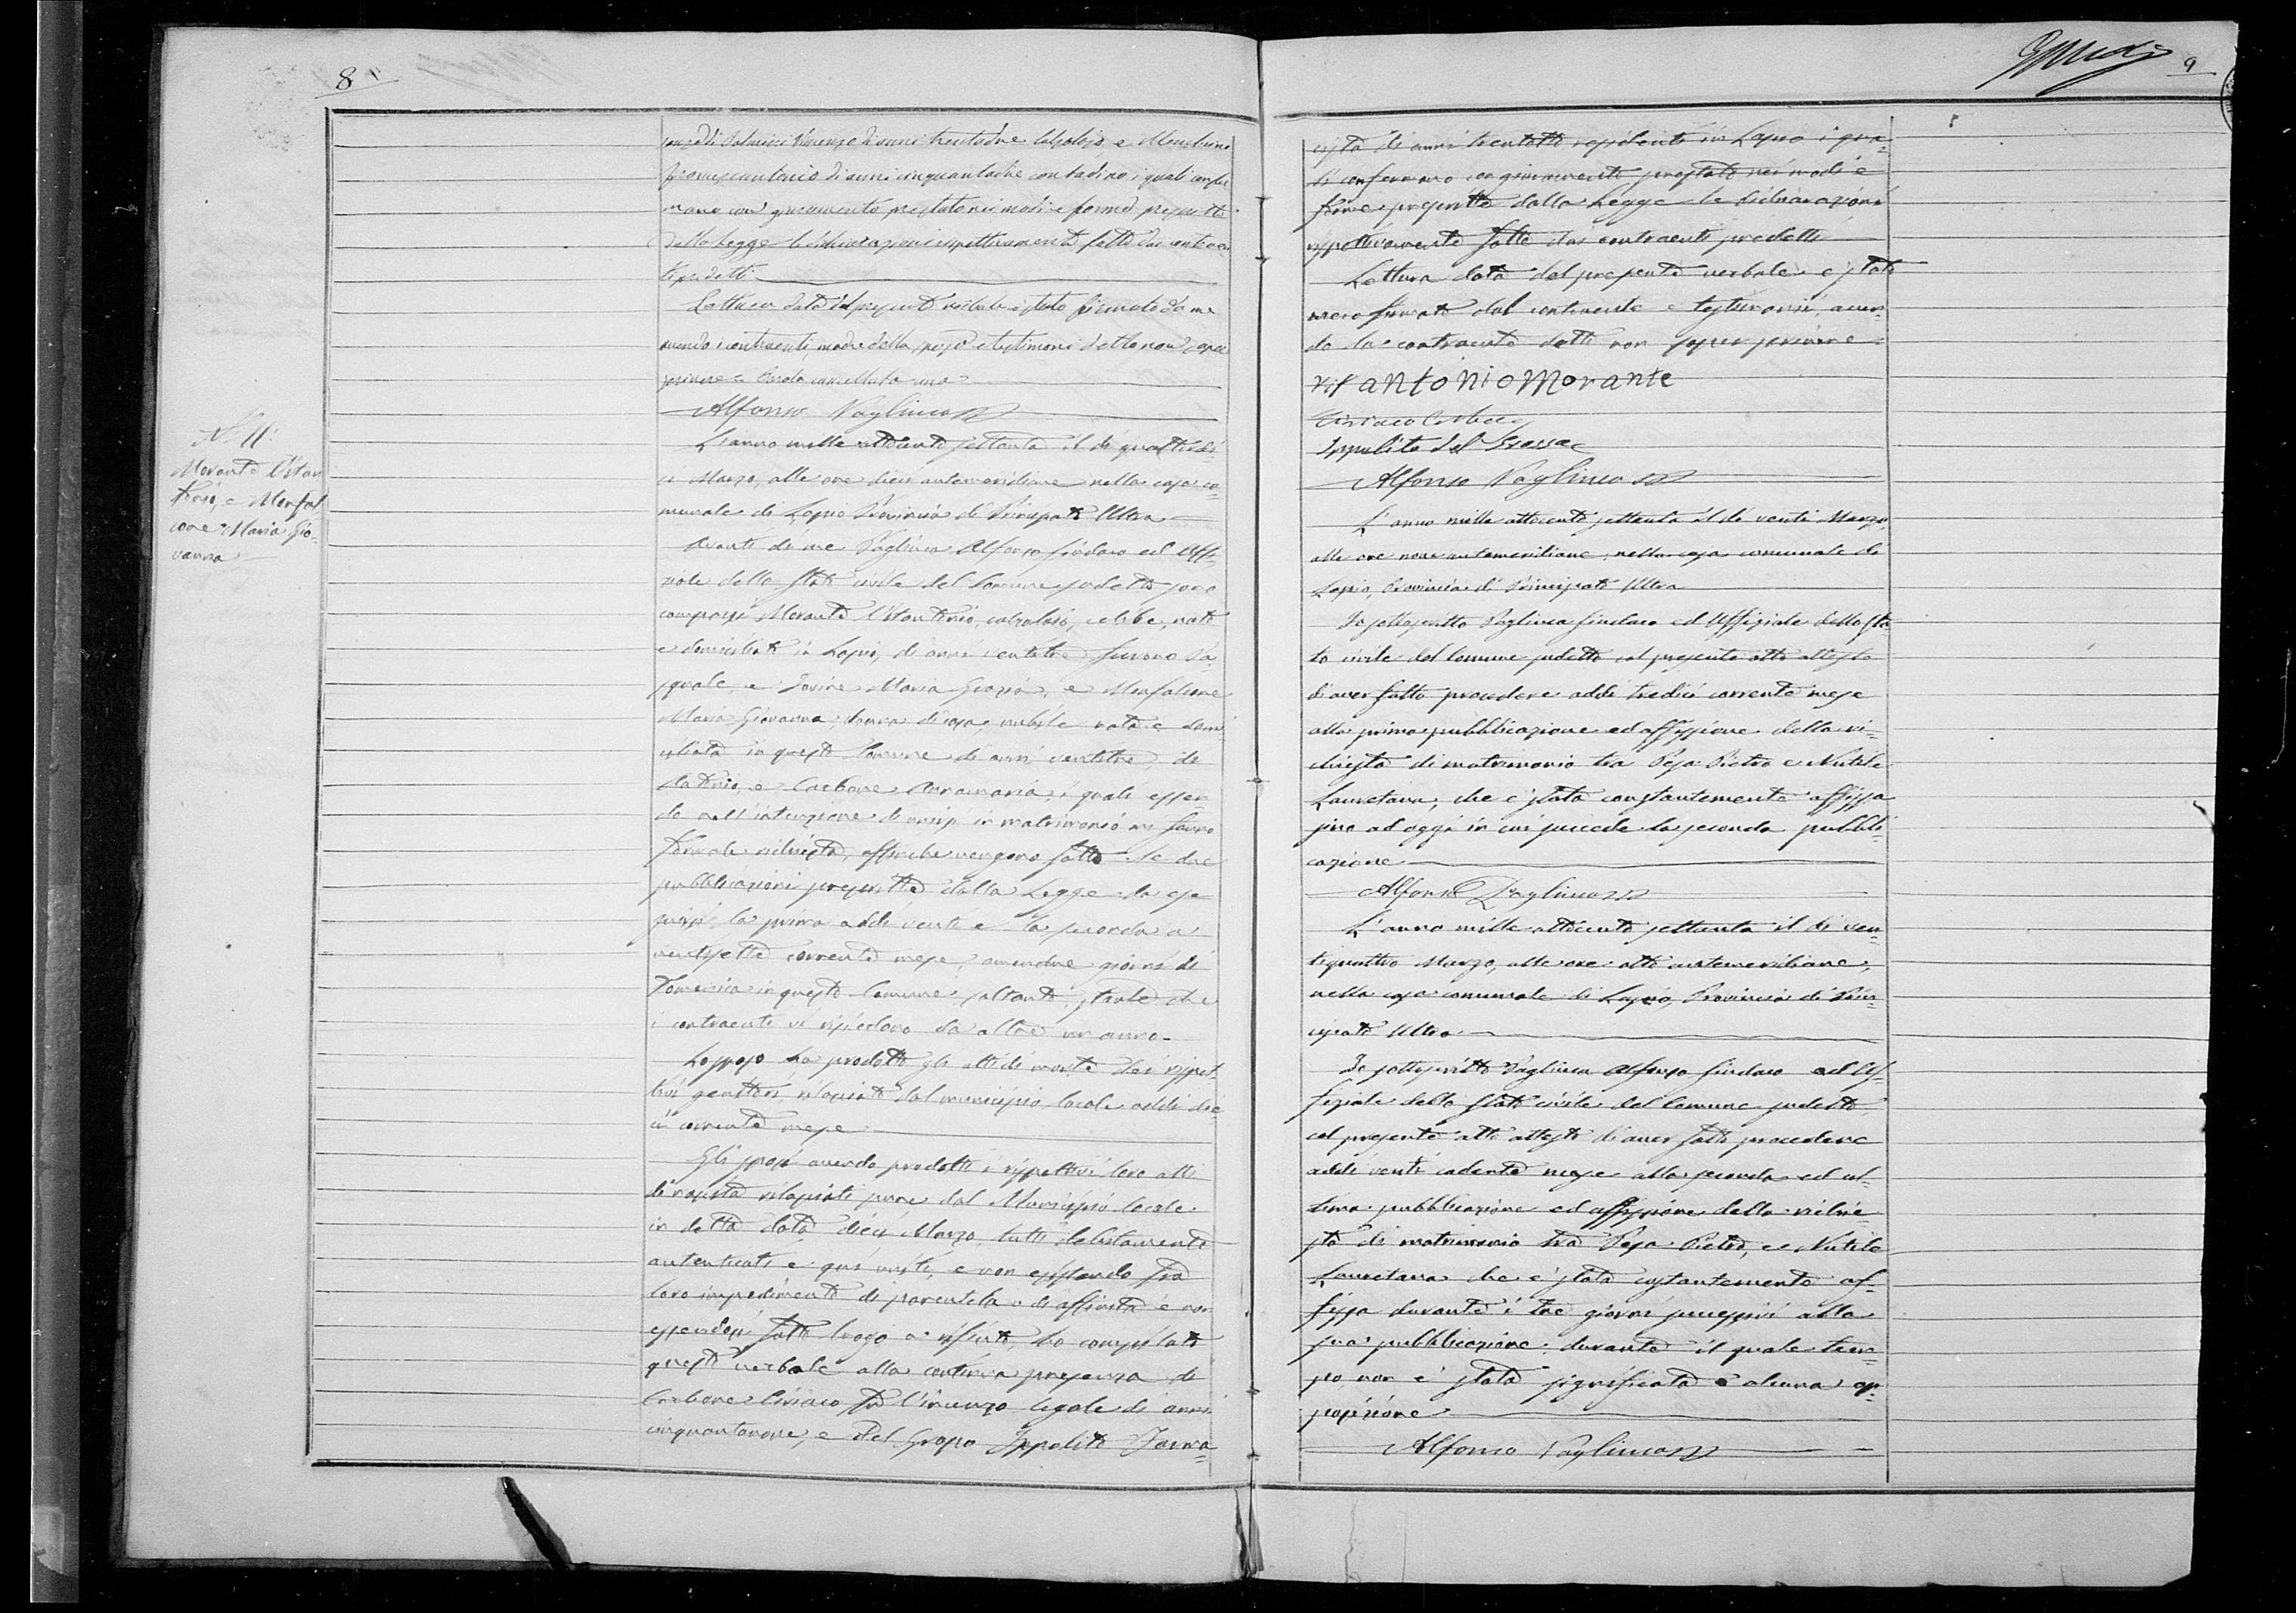 8
di anni trentadue calzolajo e
di anni cinquantadue contadino i quali confer
mano con giuramento prestato nei modi e forme prescritte
dalla Legge le dichiarazioni rispettivamente fatte dai contraen
ti predetti
Lettura data del presente verbale è stato firmato da me
avendo i contraenti, madre della sposa e testimoni detto non saper
scrivere
Alfonso Pagliuca
N. 11.
Morante
e Monfal
cone Maria Gio
vanna
L'anno mille ottocento settanta il dì quattordi
ci Marzo, alle ore dieci antemeridiane nella casa co
munale di Lapio Provincia di Principato Ultra
Avanti di me Pagliuca Alfonso Sindaco ed Uffi
ziale dello stato civile del Comune sudetto sono
comparsi Morante calzolaio, celibe, nato
e domiciliato in Lapio, di anni ventitre furono Pa
squale, e Iovine Maria Grazia, e Monfalcone
Maria Giovanna, donna di casa, nubile nata e domi
ciliata in questo Comune di anni ventitre di
e Carbone Annamaria, i quali essen
do nell'intenzione di unirsi in matrimonio mi fanno
formale richiesta, affinche vengano fatte le due
pubblicazioni prescritte dalla Legge da ese
guirsi la prima addi venti e la seconda a
ventisette corrente mese, amendue giorni di
Domenica in questo Comune soltanto, stante che
i contraenti vi risiedono da oltre un anno.
Lo sposo ha prodotto gli atti di morte dei rispet
tivi genitori rilasciati dal municipio locale addi die
ci corrente mese
Gli sposi avendo prodotti i rispettivi loro atti
di nascita rilasciati pure dal Municipio locale
in detta data dieci Marzo, tutti debitamente
autenticati e quì uniti, e non esistendo fra
loro impedimento di parentela o di affinità e non
essendosi fatto luogo a rifiuto, ho compilato
questo verbale alla continua presenza di
Carbone Ciriaco fu Vincenzo legale di anni
cinquantanove, e Del Grosso Ippolito Farma=
9
cista di anni trentotto residenti in Lapio i qua=
li confermano con giuramento prestato nei modi e
forme prescritte dalla Legge le dichiarazioni
rispettivamente fatte dai contraenti predetti
Lettura data del presente verbale è stato
meco firmato dal contraente e testimonii, aven=
do la contraente detto non saper scrivere
antonio Morante
Ciriaco Carbone
Ippolito del Grosso
Alfonso Pagliuca
L'anno mille ottocento settanta il dì venti Marzo,
alle ore nove antemeridiane, nella casa comunale di
Lapio, Provincia di Principato Ultra
Io sottoscritto Pagliuca Sindaco ed Uffiziale dello sta
to civile del Comune sudetto, col presente atto attesto
di aver fatto procedere addi tredici corrente mese
alla prima pubblicazione ed affissione della ri=
chiesta di matrimonio tra Pesa Pietro e Nutile
Lauretana, che è stata constantemente affissa
sino ad oggi in cui succede la seconda pubbli=
cazione
Alfonso Pagliuca
L'anno mille ottocento settanta il dì ven=
tiquattro Marzo, alle ore otto antemeridiane,
nella casa comunale di Lapio, Provincia di Prin=
cipato Ultra
Io sottoscritto Pagliuca Alfonso Sindaco ed Uf=
fiziale dello stato civile del Comune sudetto,
col presente atto attesto di aver fatto procedere
addi venti cadente mese alla seconda ed ul=
tima pubblicazione ed affissione della richie=
sta di matrimonio tra Pesa Pietro, e Nutile
Lauretana che è stata costantemente af=
fissa durante i tre giorni successivi alla
sua pubblicazione, durante il quale tem=
po, non è stata significata alcuna op=
posizione
Alfonso Pagliuca